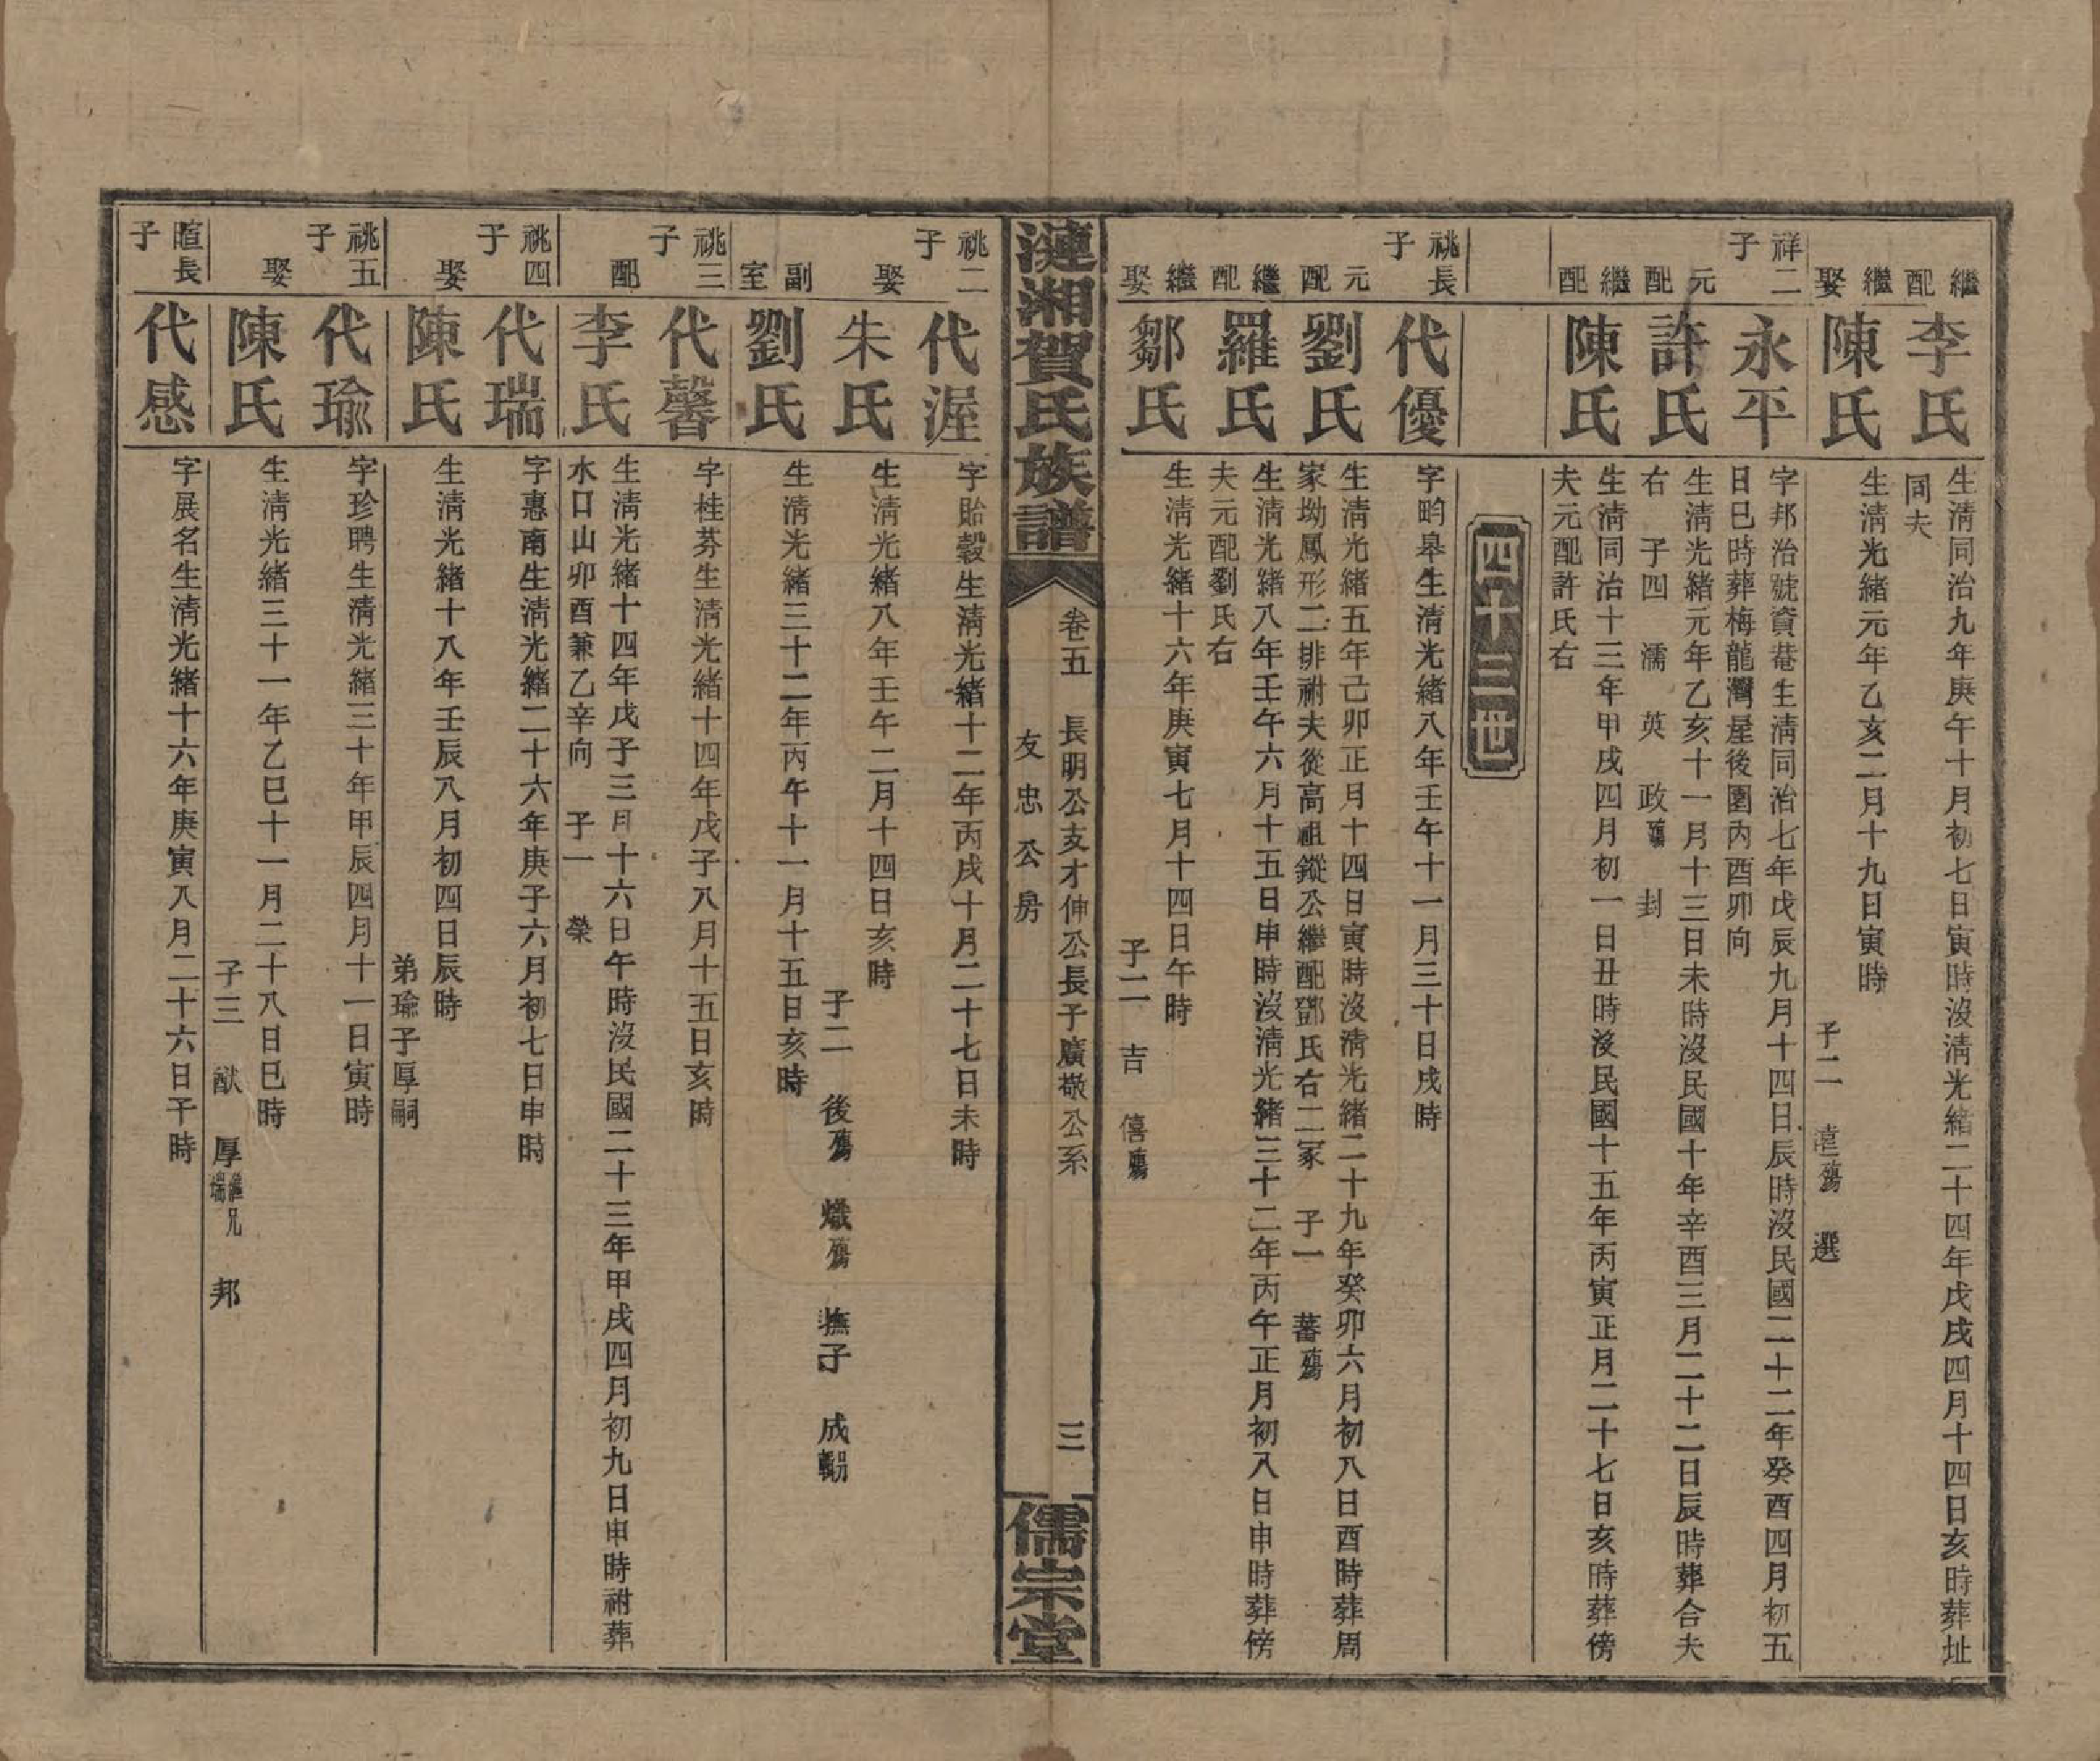 繼配 李氏 生清同治九年庚午十月初七日寅時沒清光緒二十四年戊戌四月十四日亥時葬址
同夫
繼娶 陳氏 生清光緒元年乙亥二月十九日寅時
子二 殤 選
祥二子 永平 字邦治號資菴生清同治七年戊辰九月十四日辰時沒民國二十二年癸酉四月初五
日巳時葬梅龍灣屋後園丙酉卯向
元配 許氏 生清光緒元年乙亥十一月十三日未時沒民國十年辛酉三月二十二日辰時葬合夫
右 子四 濡 英 政殤 封
繼配 陳氏 生清同治十三年甲戌四月初一日丑時沒民國十五年丙寅正月二十七日亥時葬傍
夫元配許氏右
四十三世
祧長子 代優 字畇皋生清光緒八年壬午十一月三十日戌時
元配 劉氏 生清光緒五年己卯正月十四日寅時沒清光緒二十九年癸卯六月初八日酉時葬周
家坳鳳形二排祔夫從高祖鏦公繼配鄧氏右二冢 子一 蕃殤
繼配 羅氏 生清光緒八年壬午六月十五日申時沒清光緒三十二年丙午正月初八日申時葬傍
夫元配劉氏右
繼娶 鄒氏 生清光緒十六年庚寅七月十四日午時
子二 吉 僖殤
漣湘賀氏族譜
卷五 長明公支才伸公長子廣敬公系 三
友忠公房
儒宗堂
祧二子 代渥 字貽穀生清光緒十二年丙戌十月二十七日未時
娶 朱氏 生清光緒八年壬午二月十四日亥時
子二 後殤 熾殤 撫子 成
副室 劉氏 生清光緒三十二年丙午十一月十五日亥時
祧三子 代馨 字桂芬生清光緒十四年戊子八月十五日亥時
配 李氏 生清光緒十四年戊子三月十六日午時沒民國二十三年甲戌四月初九日申時祔葬
水口山卯酉兼乙辛向 子一 榮
祧四子 代瑞 字惠南生清光緒二十六年庚子六月初七日申時
娶 陳氏 生清光緒十八年壬辰八月初四日辰時
弟瑜子厚嗣
祧五子 代瑜 字珍聘生清光緒三十年甲辰四月十一日寅時
娶 陳氏 生清光緒三十一年乙巳十一月二十八日巳時
子三 猷 厚繼兄瑞 邦
暄長子 代感 字展名生清光緒十六年庚寅八月二十六日午時